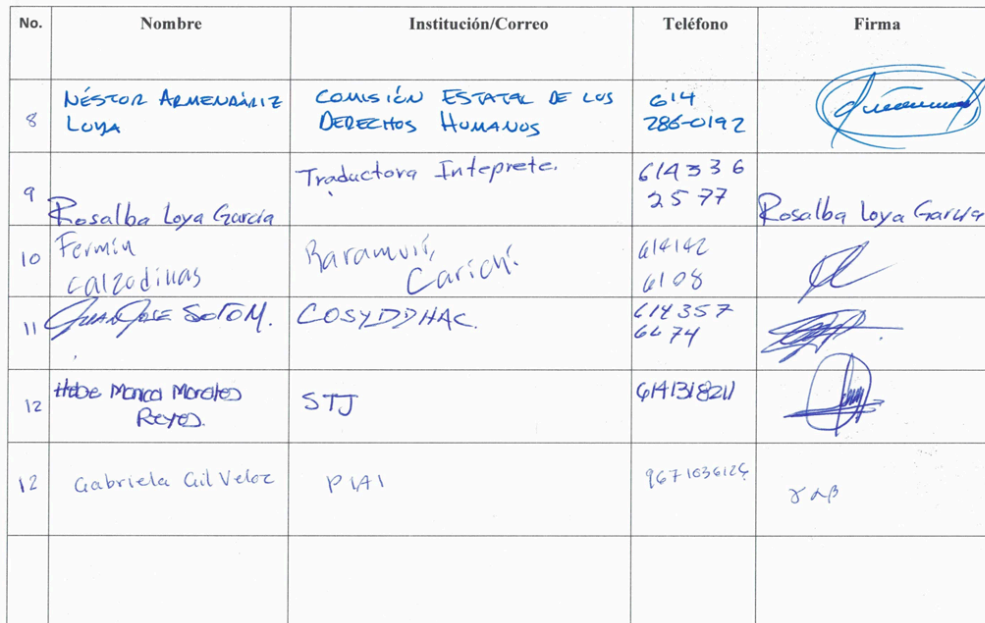 No. Nombre Institución/Correo Teléfono Firma
8 NÉSTOR ARMENDÁRIZ LOYA COMISIÓN ESTATAL DE LOS DERECHOS HUMANOS 614 286-0192
9 Rosalba Loya García Traductora Inteprete. 614336 2577 Rosalba Loya García
10 Fermín Calzadillas Raramuri, Carichí 614142 6108
11 JUAN JOSE SOTO M. COSYDDHAC. 614357 6674
12 Hebe Monica Morales Reyes. STJ 6141318211
12 Gabriela Gil Veloz PIAI